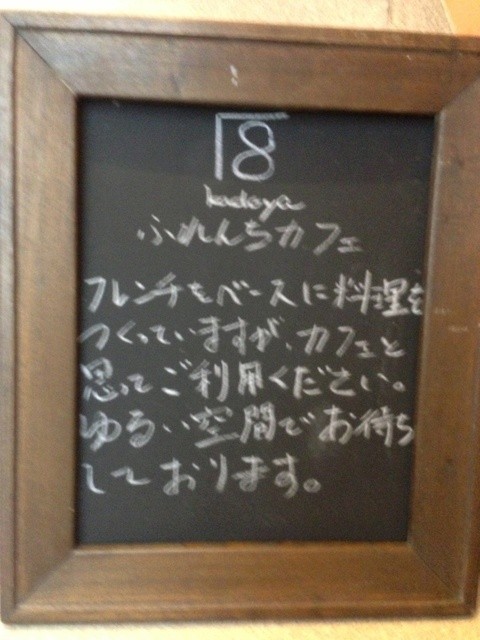 8
kadoya
ふれんちカフェ
フレンチをベースに料理を
つくっていますが、カフェと
思ってご利用ください。
ゆるい空間でお待ち
しております。